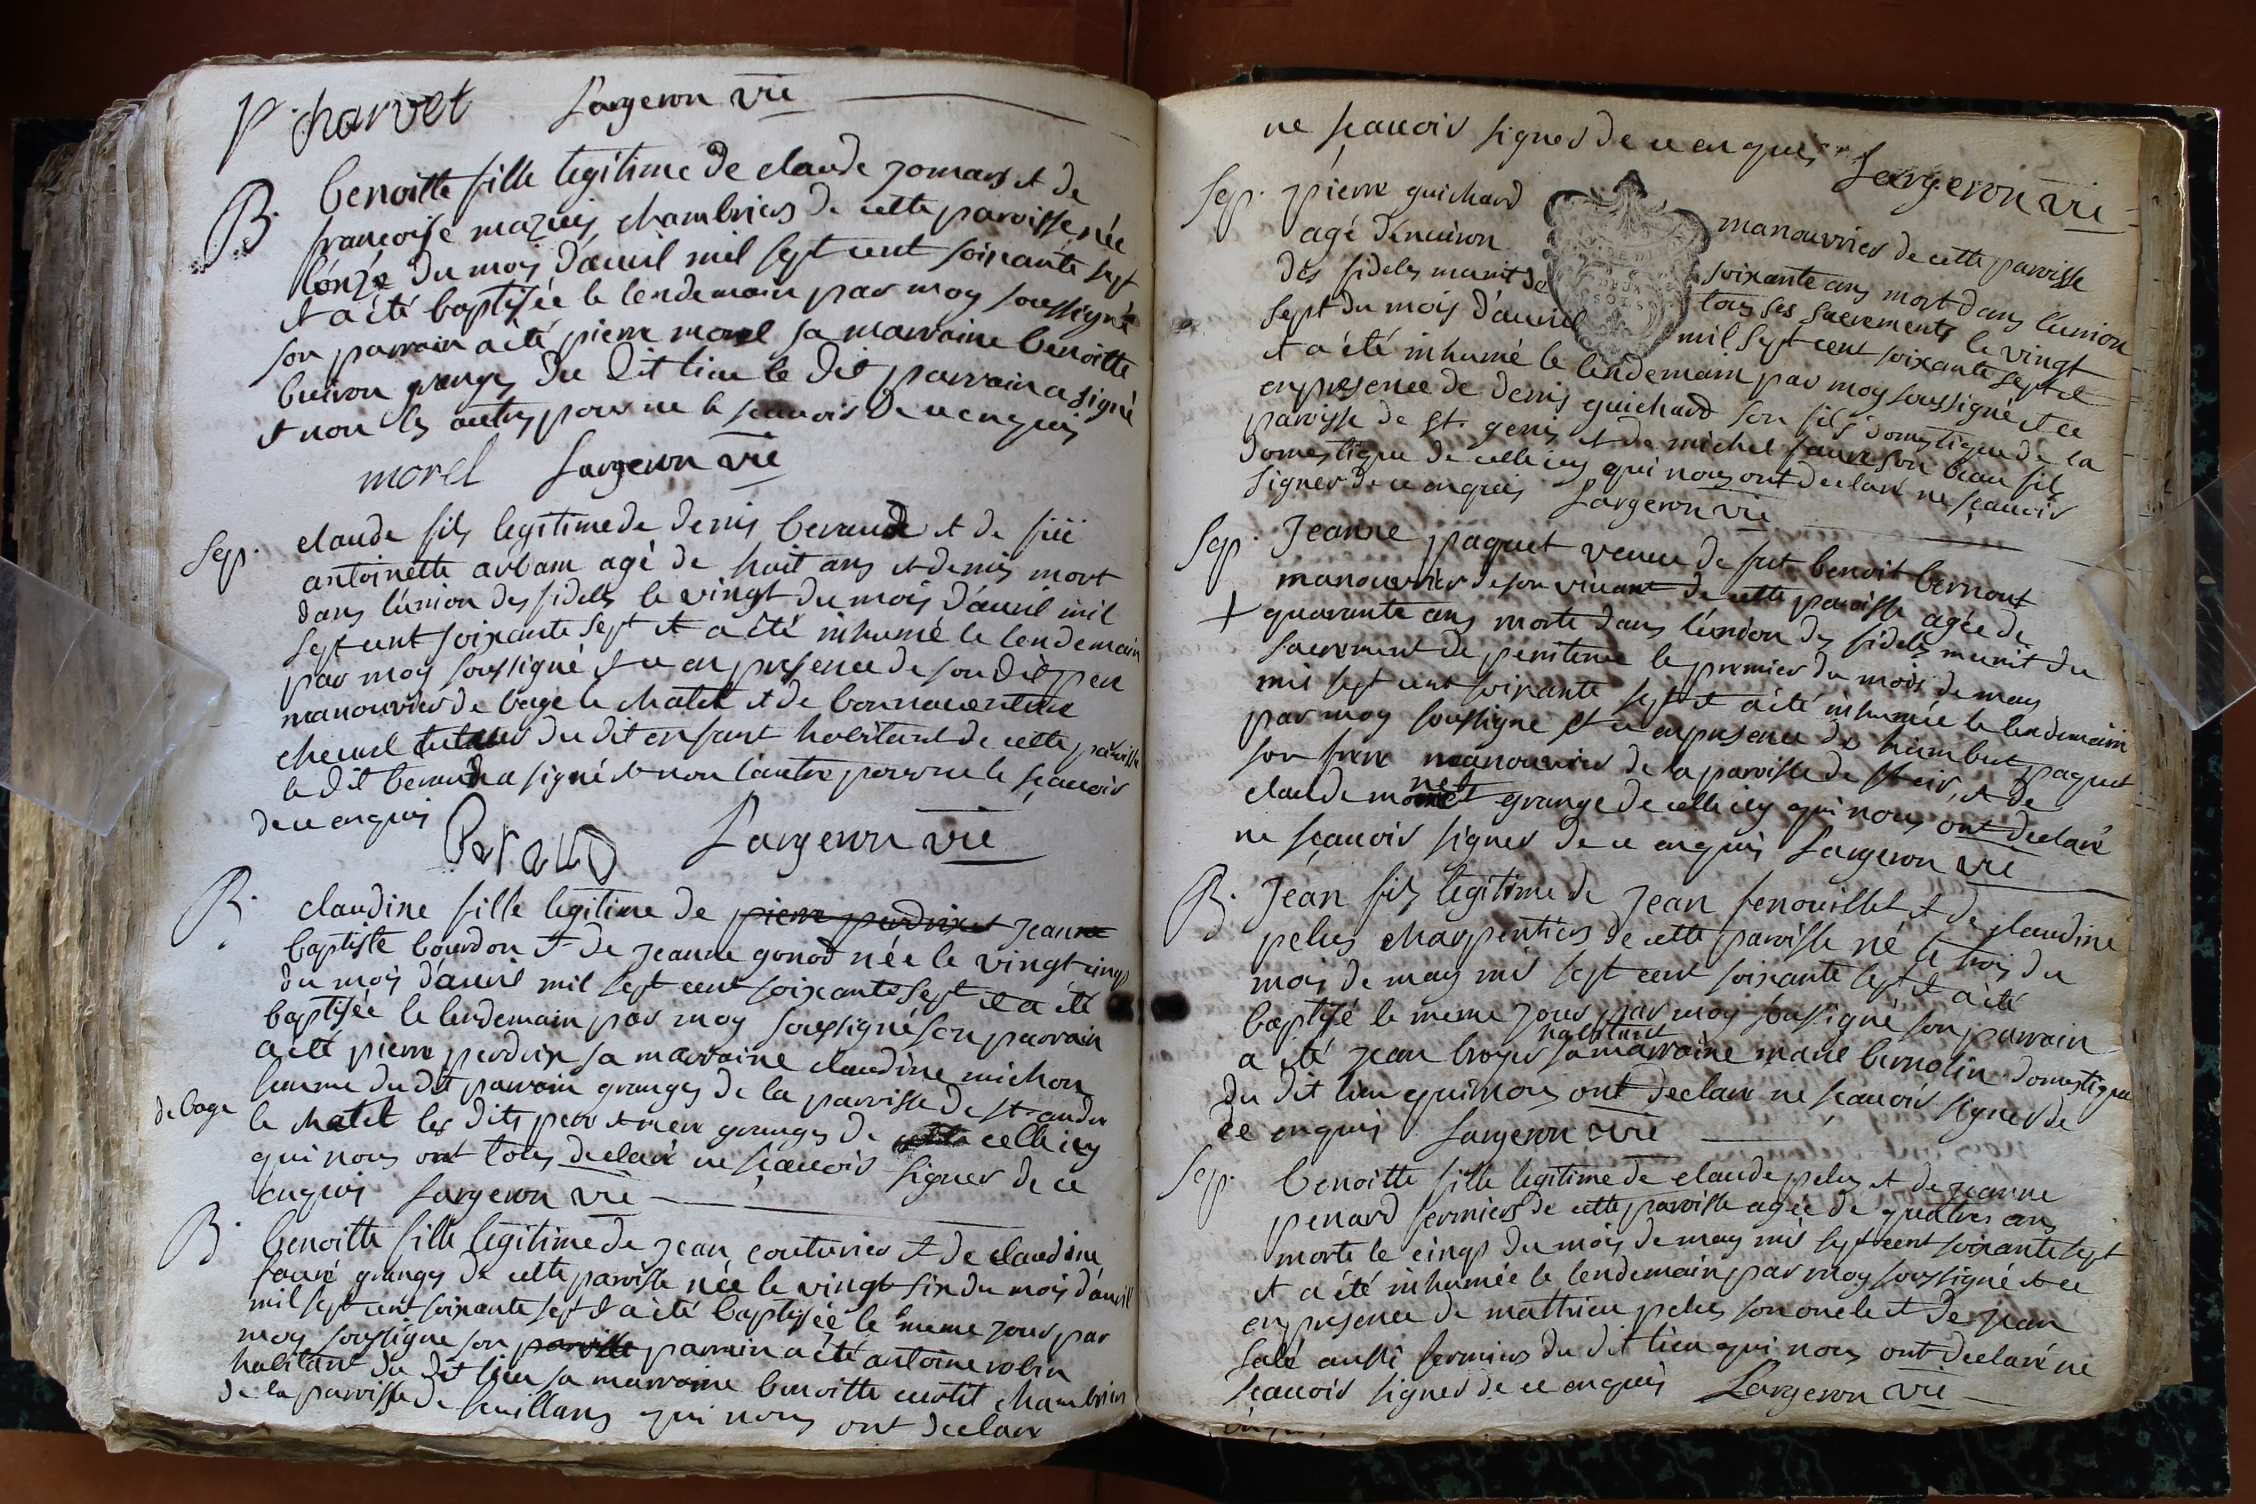 P. charvet Largeron vic
B. benoitte fille legitime de claude jomard et de
françoise mazuis chambriers de cette paroisse née
l'onze du mois d'auril mil sept cent soixante sept
et a été baptisée le lendemain par moy soussigné
son parrain a été pierre morel sa marraine benoitte
buiron grangers du dit lieu le dit parrain a signé
et non les autres pour ne le sçauoir de ce enquis
morel Largeron vic
Sep. claude fils legitime de denis beraud et de feüe
antoinette arbam agé de huit ans et demis mort
dans l'union des fideles le vingt du mois d'auril mil
sept cent soixante sept et a été inhumé le lendemain
par moy soussigné et ce en presence de son dit pere
manouvrier de bagé le chatel et de bonnauenture
cheurel tuteur du dit enfant habitant de cette paroisse
le dit beraud a signé et non l'autre pour ne le sçauoir
de ce enquis
Beraud Largeron vic
B. claudine fille legitime de pierre perdrix et jeanne
baptiste bourdon et de jeanne gonod née le vingt cinq
du mois d'auril mil sept cent soixante sept et a été
baptisée le lendemain par moy soussigné son parrain
a été pierre perdrix sa marraine claudine michon
femme du dit parrain grangers de la paroisse de st. andre
de bage le chatel les dits pere et mere grangers de celle icy
qui nous ont tous declaré ne sçauoir signer de ce
enquis Largeron vic
B. benoitte fille legitime de jean couturier et de claudine
fauré grangers de cette paroisse née le vingt six du mois d'auril
mil sept cent soixante sept et a été baptisée le meme jour par
moy soussigné son paroisse parrain a été antoine robin
habitant du dit lieu sa marraine benoitte curtil chambrier
de la paroisse de feuillans qui nous ont declaré
ne sçauoir signer de ce enquis Largeron vic
Sep. pierre guichard manouvrier de cette paroisse
agé d'enuiron soixante ans mort dans l'union
des fideles munit de tous ses sacrements le vingt
sept du mois d'auril mil sept cent soixante sept et
et a été inhumé le lendemain par moy soussigné et ce
en presence de denis guichard son fils domestique de la
paroisse de st. genis et de michel faure son beau fils
domestique de celle icy qui nous ont declaré ne sçauoir
signer de ce enquis Largeron vic
Sep. Jeanne paquet veuue de fut benoit bernout
manouvrier de son viuant de cette paroisse agée de
+ quarante ans morte dans l'union des fideles munit du
sacrement de penitence le premier du mois de may
mil sept cent soixante sept et a été inhumée le lendemain
par moy soussigné et ce en presence de humbert paquet
son frere manouvrier de la paroisse de st. cir, et de
claude monet granger de celle icy qui nous ont declaré
ne sçauoir signer de ce enquis Largeron vic
B. Jean fils legitime de Jean fenouillet et de claudine
pelus charpentiers de cette paroisse né le trois du
mois de may mil sept cent soixante sept et a été
baptisé le meme jour par moy soussigné son parrain
habitant
a été jean broyer sa marraine marie bernolin domestique
du dit lieu qui nous ont declaré ne sçauoir signer de
ce enquis Largeron vic
Sep. benoitte fille legitime de claude pelus et de jeanne
penard fermiers de cette paroisse agée de quatres ans
morte le cinq du mois de may mil sept cent soixante sept
et a été inhumée le lendemain par moy soussigné et ce
en presence de matthieu pelus son oncle et de jean
salé aussi fermiers du dit lieu qui nous ont declaré ne
sçauoir signer de ce enquis Largeron vic